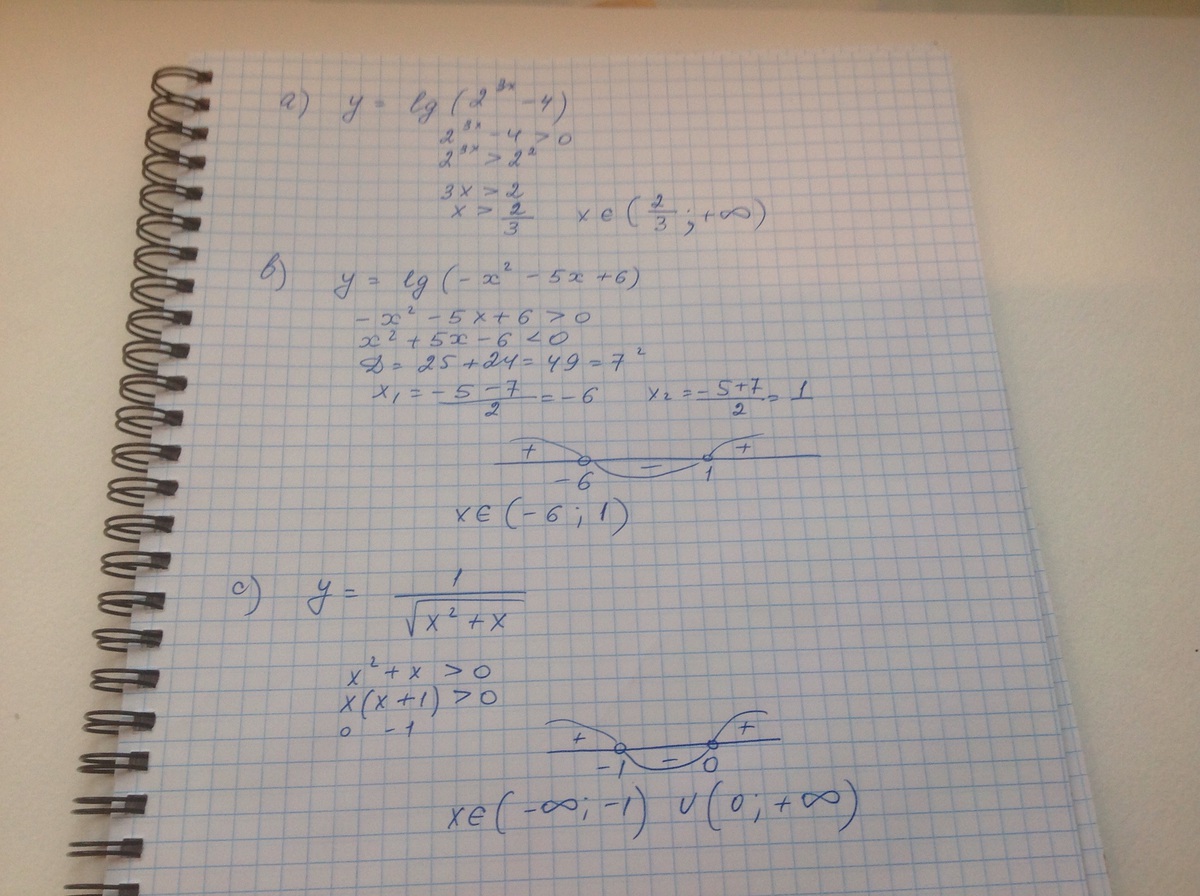 a) y = lg (2^{3x} - 4)
2^{3x} - 4 > 0
2^{3x} > 2^2
3x > 2
x > \frac{2}{3} x ∈ (\frac{2}{3}; +∞)
b) y = lg (-x² - 5x + 6)
-x² - 5x + 6 > 0
x² + 5x - 6 < 0
D = 25 + 24 = 49 = 7²
x₁ = \frac{-5-7}{2} = -6 x₂ = \frac{-5+7}{2} = 1
+ - +
-6 1
x ∈ (-6; 1)
c) y = \frac{1}{\sqrt{x² + x}}
x² + x > 0
x(x+1) > 0
0 -1
+ - +
-1 0
x ∈ (-∞; -1) ∪ (0; +∞)